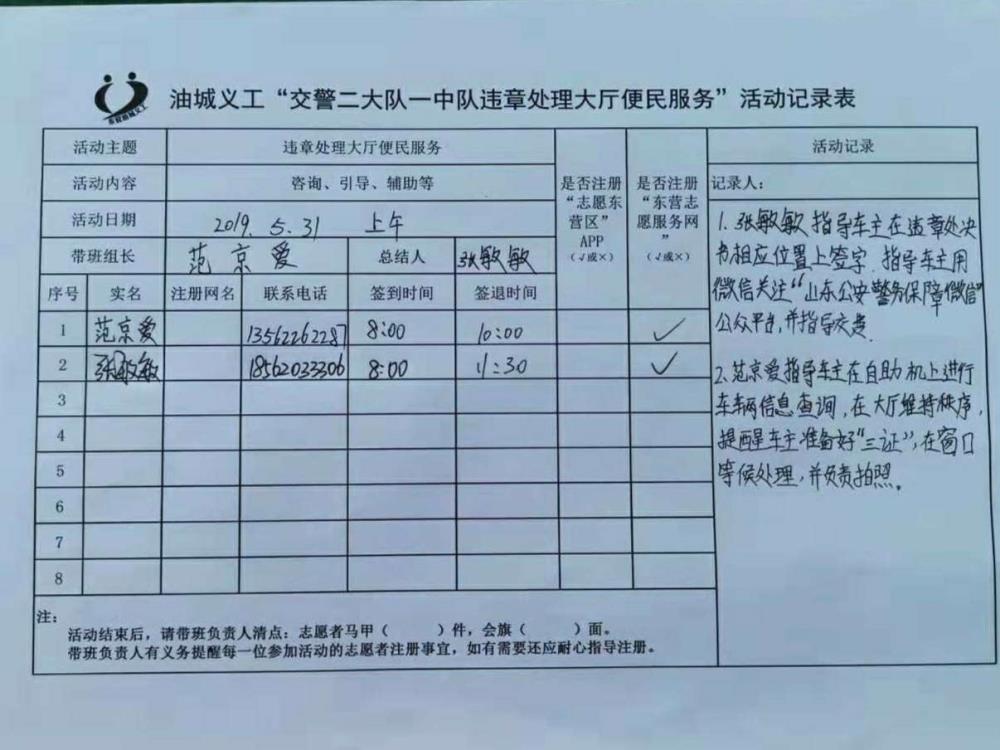 东营油城义工
油城义工“交警二大队一中队违章处理大厅便民服务”活动记录表
活动主题 违章处理大厅便民服务
活动内容 咨询、引导、辅助等
活动日期 2019.5.31 上午
带班组长 范京爱 总结人 张敏敏
是否注册“志愿东营区”APP(√或×)
是否注册“东营志愿服务网”(√或×)
序号 实名 注册网名 联系电话 签到时间 签退时间
1 范京爱 13562262287 8:00 10:00 ✓
2 张敏敏 18562033306 8:00 11:30 ✓
3
4
5
6
7
8
注:
活动结束后,请带班负责人清点:志愿者马甲( )件,会旗( )面。
带班负责人有义务提醒每一位参加活动的志愿者注册事宜,如有需要还应耐心指导注册。
活动记录
记录人:
1.张敏敏指导车主在违章处决
书相应位置上签字.指导车主用
微信关注“山东公安警务保障微信”
公众平台,并指导交费.
2.范京爱指导车主在自助机上进行
车辆信息查询,在大厅维持秩序,
提醒车主准备好“三证”,在窗口
等候处理,并负责拍照.